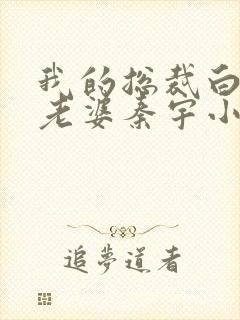 我的总裁白
老婆秦宇小
追梦道者